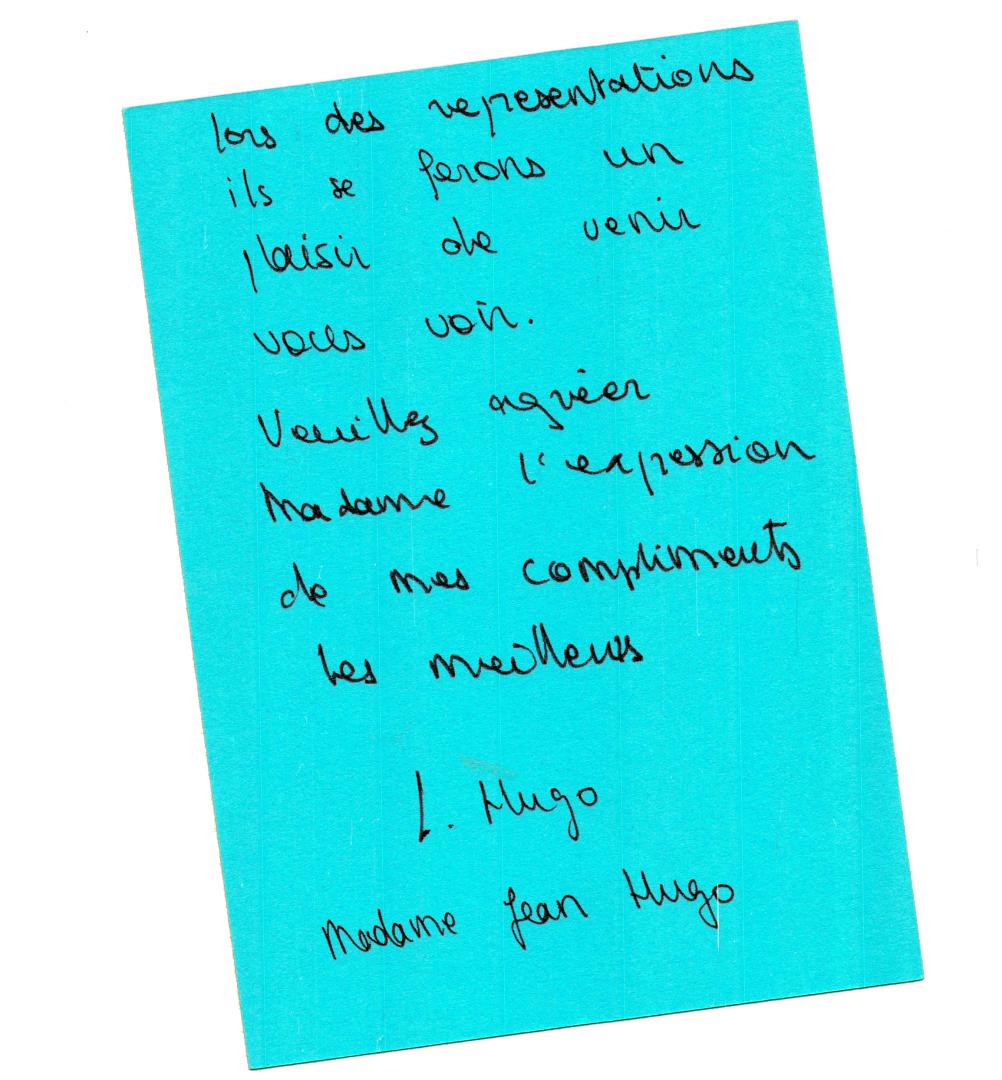 lors des representations
ils se ferons un
plaisir de venir
vous voir.
Veuillez agréer
Madame l'expression
de mes compliments
les meilleurs
L. Hugo
Madame Jean Hugo